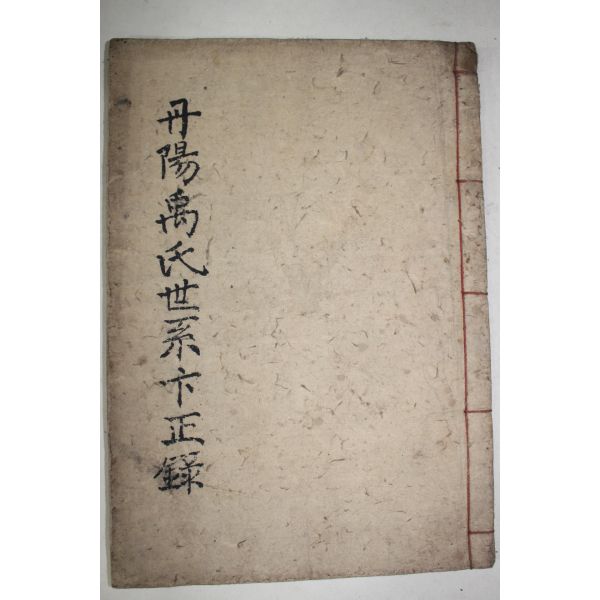 丹陽禹氏世系卞正錄